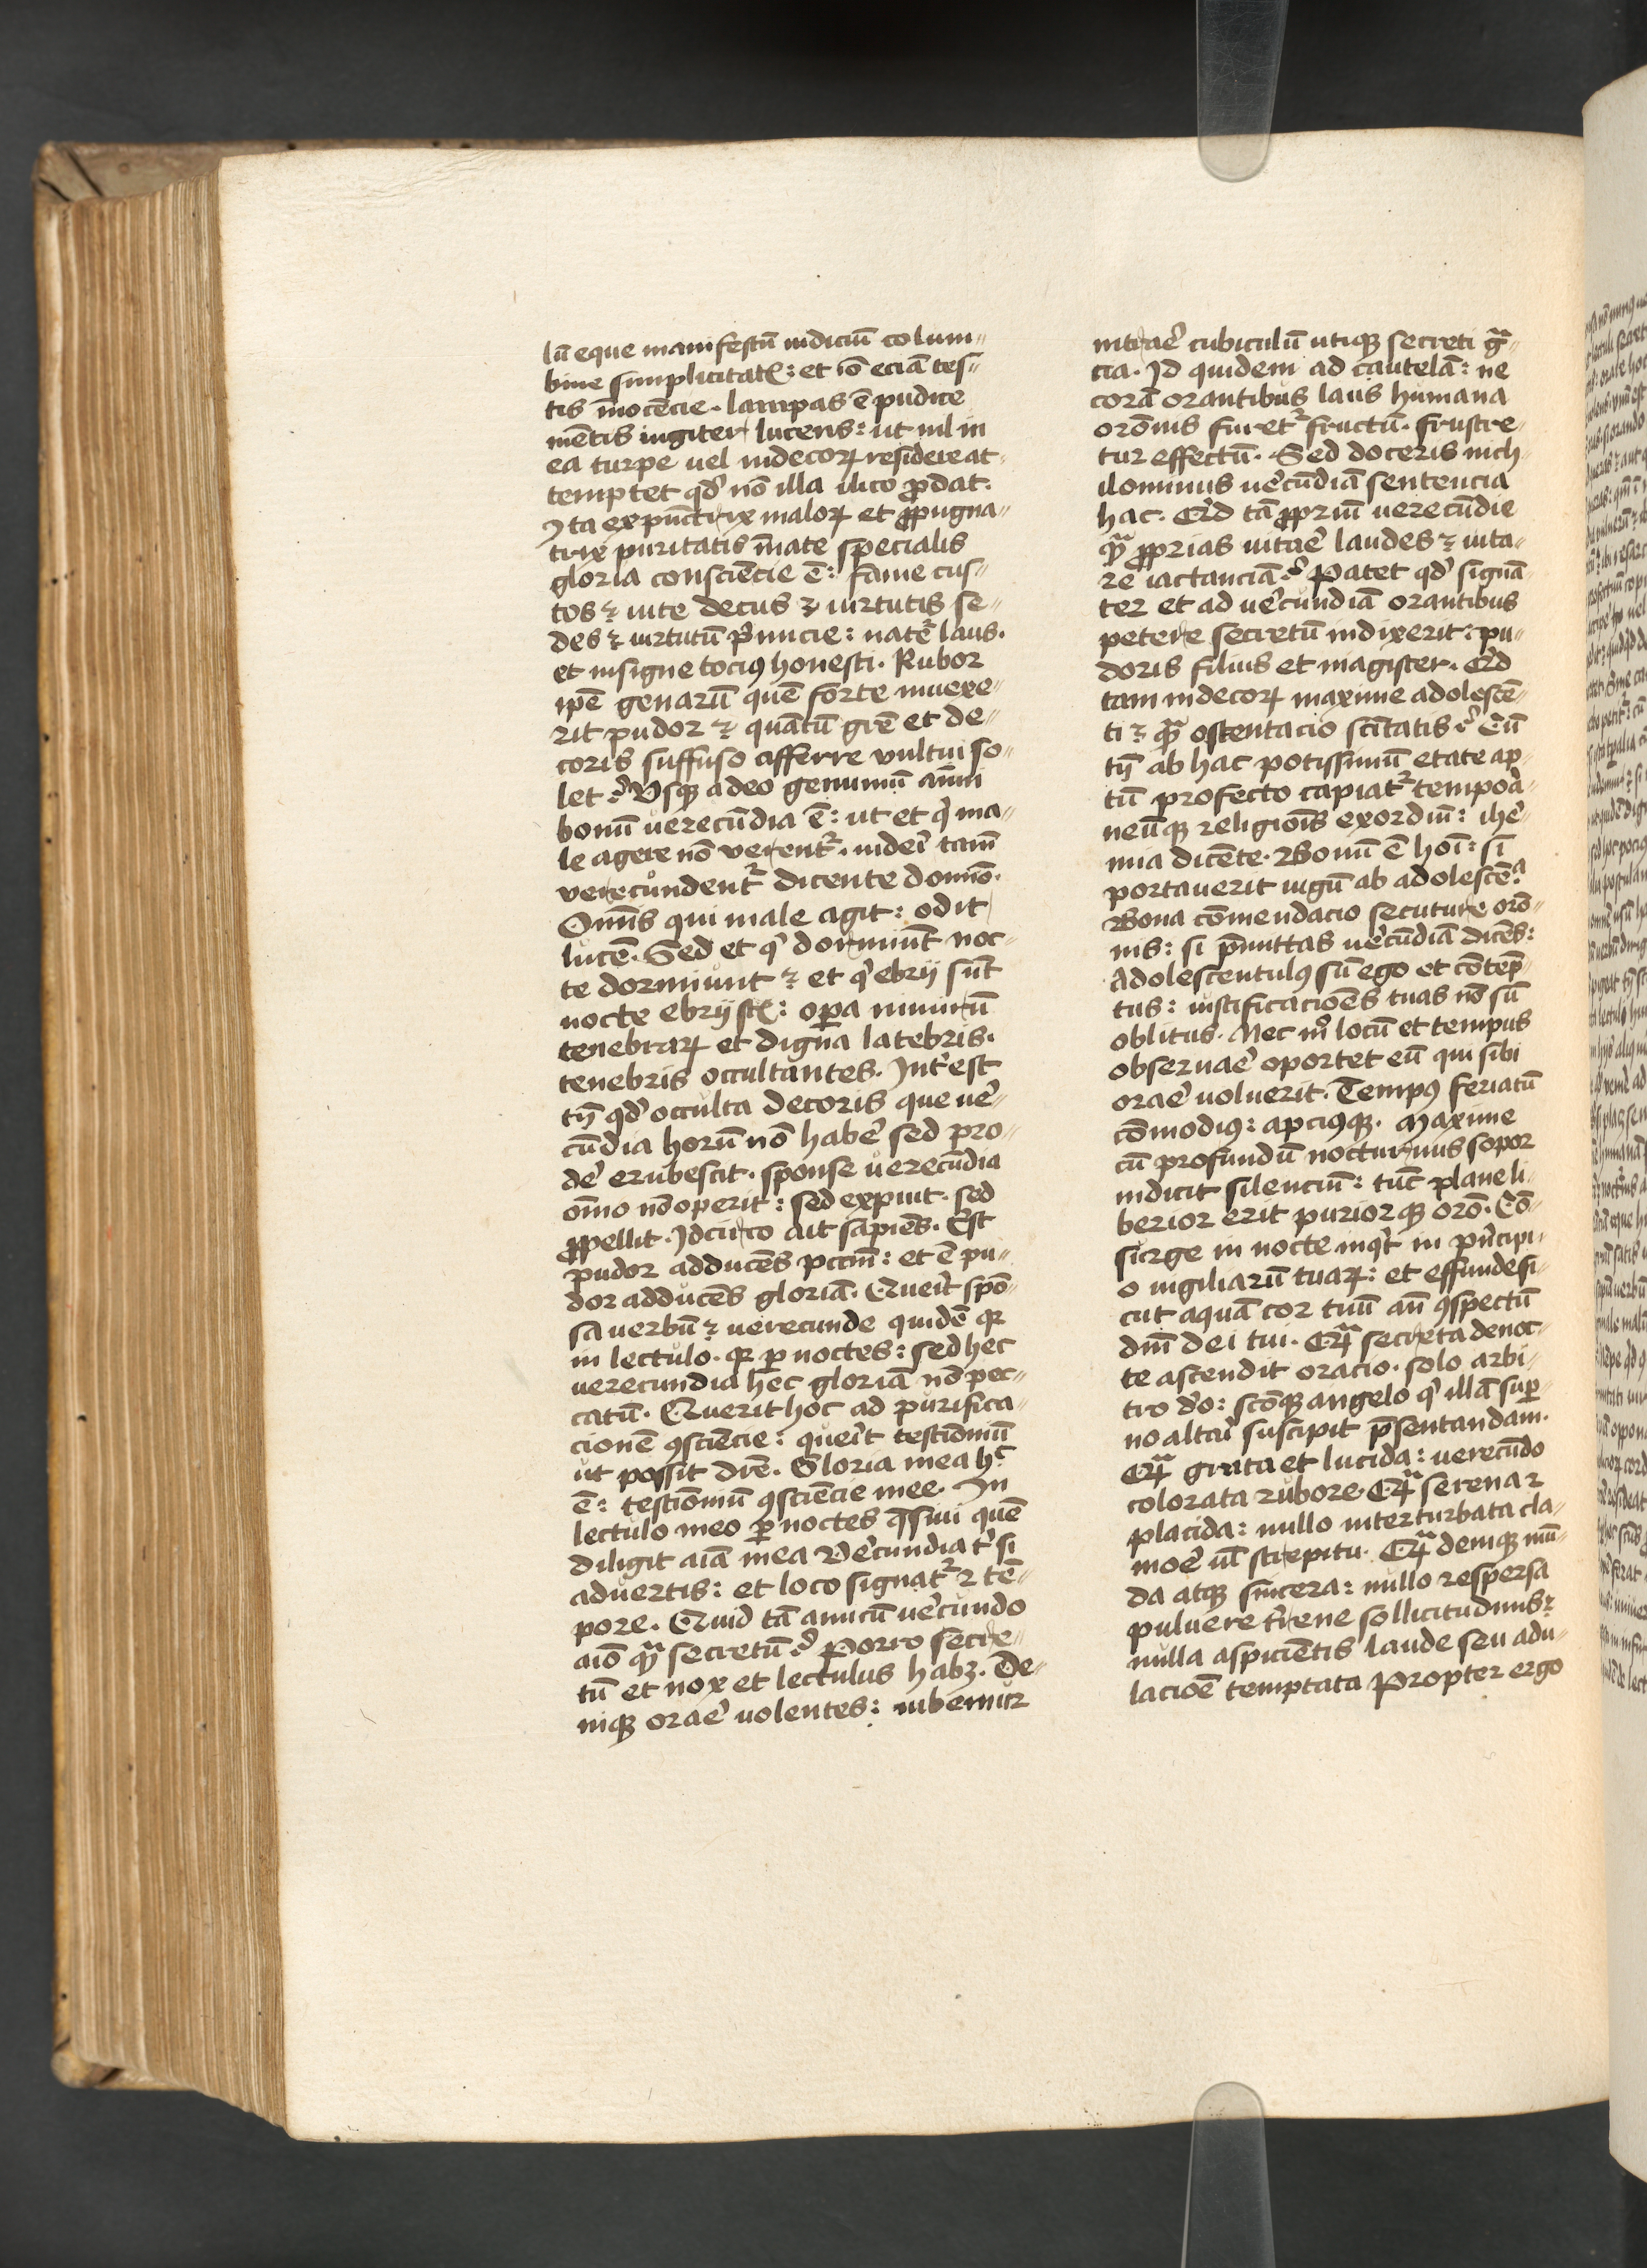 lū eque manifestū indiciū colum⸗
bine simplicitatꝭ: et iō eciā tes⸗
tis īnocēcie. lampas ē pudice
mētis iugiter lucens: ut nil in
ea turpe uel indecoꝝ residere at⸗
temptet qd̕ nō illa ilico ꝓdat.
Ista expūctrix maloꝝ et ꝓpugna⸗
trix puritatis īnate specialis
gloria consciēcie ē: fame cus⸗
tos ⁊ uite decus ⁊ uirtutis se⸗
des ⁊ uirtutū p̕micie: nat̕e laus.
et insigne tociꝰ honesti. Rubor
ip̄e genarū quē forte inuexe⸗
rit pudor ⁊ quātū gr̄e et de⸗
coris suffuso afferre vultui so⸗
let? Vsqꝫ adeo genuinū aīmi
bonū uerecūdia ē: ut et q̕ ma⸗
le agere nō verent᷑. uideri tam̄
verecundent᷑ dicente domīo.
Omnīs qui male agit: odit
lucē. Sed et q̕ dormiūt noc⸗
te dormiunt ⁊ et q̕ ebrij sūt
nocte ebrij sꝭ: oꝑa nimirū
tenebraꝝ et digna latebris.
tenebris occultantes. Int̕est
tn̄ qd̕ occulta decoris que ue̕⸗
cūdia horū nō habe̕ sed pro⸗
de̕ erubescit. sponse uerecūdia
oīno nō operit: sed expuit. sed
ꝓpellit. Idcirco ait sapiēs. Est
pudor adducēs pctm̄: et ē pu⸗
dor adducēs gloriā. Querit spō⸗
sa uerbū ⁊ uerecunde quidē qꝛ
in lectulo. qꝛ ꝑ noctes: sed hec
uerecundia hec gloriā nō pec⸗
catū. Querit hoc ad purifica⸗
cionē ꝯsciēcie: querit testiōniū
ut possit dicē. Gloria mea hͨ
ē: testiōniū ꝯsciēcie mee. In
lectulo meo ꝑ noctes q̄siui quē
diligit aīa mea Ve̕cundia t̕ si
aduertis: et loco signat᷑ ⁊ tē⸗
pore. Quid tā amicū ue̕cundo
aīo qͣ secretū? Porro secre⸗
tū et nox et lectulus habꝫ. De⸗
niqꝫ orare̕ uolentes: iubemur
intrare̕ cubiculū utiqꝫ secreti gͣ⸗
cia. Id quidem ad cautelā: ne
corā orantibus laus humana
orōnis furet᷑ fructū. frustre⸗
tur effectū. Sed doceris nich⸗
ilominus ue̕cūdiā sentencia
hac. Qͥd tā ꝓpriū uerecūdie
qͣ ꝓprias uitare̕ laudes ⁊ uita⸗
re iactanciā? Patet qd̕ signā⸗
ter et ad ue̕cundiā orantibus
petere secretū indixerit: pu⸗
doris filius et magister. Qͥd
tam indecoꝝ maxime adolescē⸗
ti ⁊ qͣ ostentacio scītatis? Cū
tn̄ ab hac potissimū etate ap⸗
tū profecto capiat᷑ tempora̕⸗
neūqꝫ religiōis exordiū: ihe̕⸗
mia dicēte. Bonū ē hoī: si
portauerit iugū ab adolescēͣ.
Bona cōmendacio secuture orō⸗
nis: si p̄mittas ue̕cūdiā dicēs:
Adolescentulꝰ sū ego et cōtēp⸗
tus: iustificaciōes tuas nō sū
oblitus. Nec mͦ locū et tempus
obseruare̕ oportet eū qui sibi
orare̕ uoluerit. Tempꝰ feriatū
cōmodiꝰ: apciꝰqꝫ. Maxime
cū profundū nocturnus sopor
indicit silenciū: tūc plane li⸗
berior erit puriorqꝫ orō. Cō⸗
surge in nocte inqͥt in pͥncipi⸗
o uigiliarū tuaꝝ: et effunde si⸗
cut aquā cor tuū an̄ ꝯspectū
dm̄ dei tui. Qͣ secreta de noc⸗
te ascendit oracio. solo arbi⸗
tro do̕: scōqꝫ angelo q̕ illā suꝑ⸗
no altari suscipit p̄sentandam.
Qͣ grata et lucida: uerecūdo
colorata rubore. Qͣ serena ⁊
placida: nullo interturbata cla⸗
more̕ ul̕ strepitu. Qͣ deniqꝫ mū⸗
da atqꝫ sincera: nullo respersa
puluere t̕rene sollicitudinis ⁊
nulla aspiciētis laude seu adu⸗
laciōē temptata Propter ergo